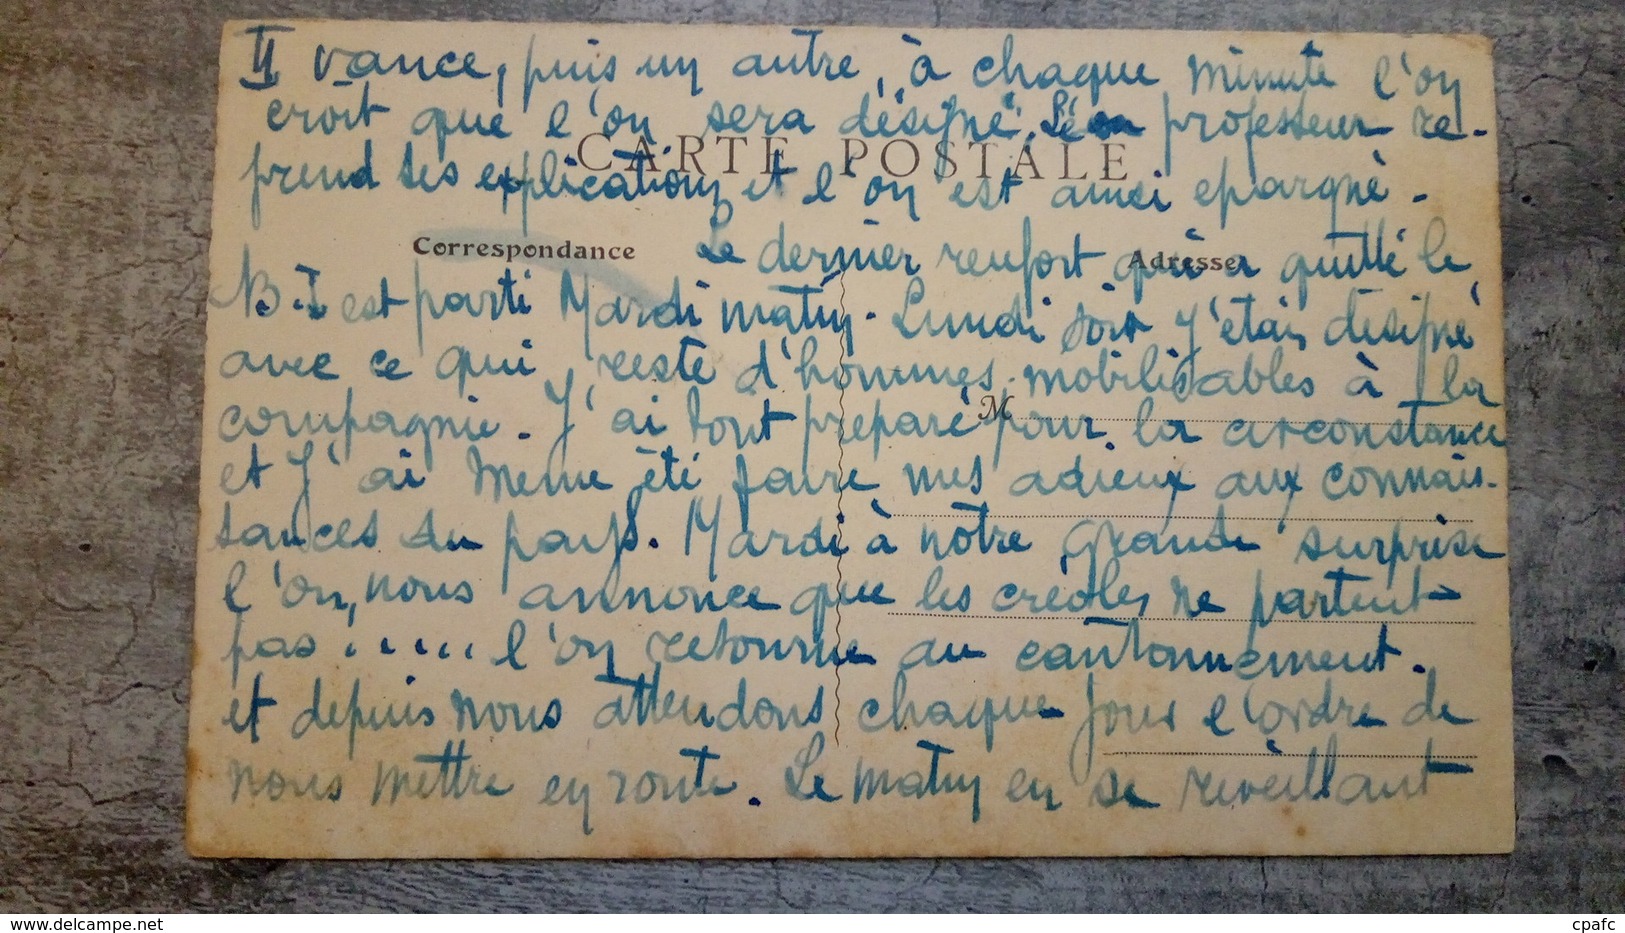 II vance, puis un autre, à chaque minute l'on
croit que l'on sera désigné. Le professeur re-
CARTE POSTALE
prend ses explications et l'on est ainsi epargné.
Correspondance
Adresse
Le dernier renfort qui a quitté le
N.B.I est parti Mardi matin. Lundi soir j'étais désigné
avec ce qui reste d'hommes mobilisables à la
M
compagnie. J'ai tout preparé pour la circonstance
et j'ai meme été faire mes adieux aux connais-
sances du pays. Mardi à nôtre grande surprise
l'on nous annonce que les créoles ne partent
pas..... l'on retourne au cantonnement.
et depuis nous attendons chaque jour l'ordre de
nous mettre en route. Le matin en se réveillant
delcampe.net
cpafc